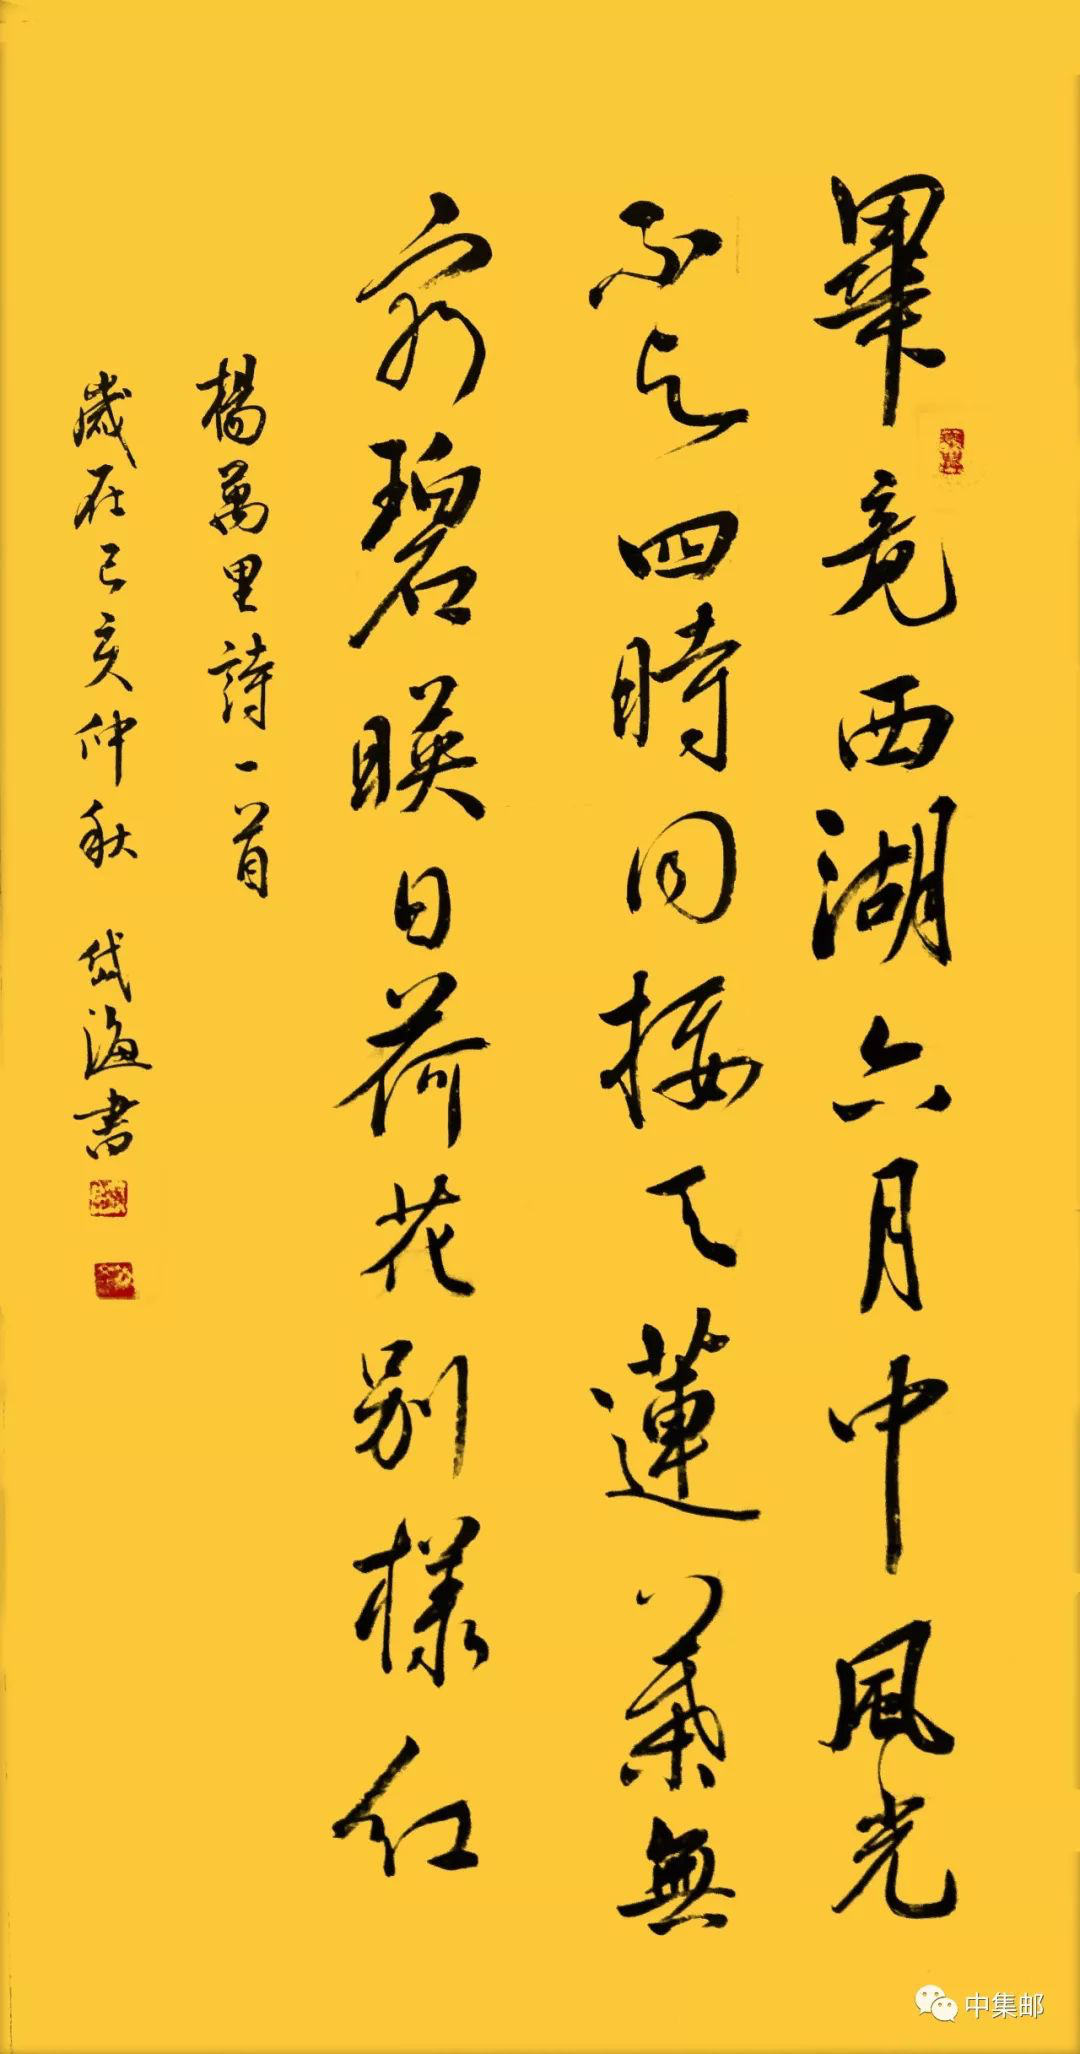 畢竟西湖六月中風光
不与四時同接天蓮葉無
穷碧暎日荷花别樣红
楊萬里詩一首
歲在己亥仲秋 岱海書
中集邮